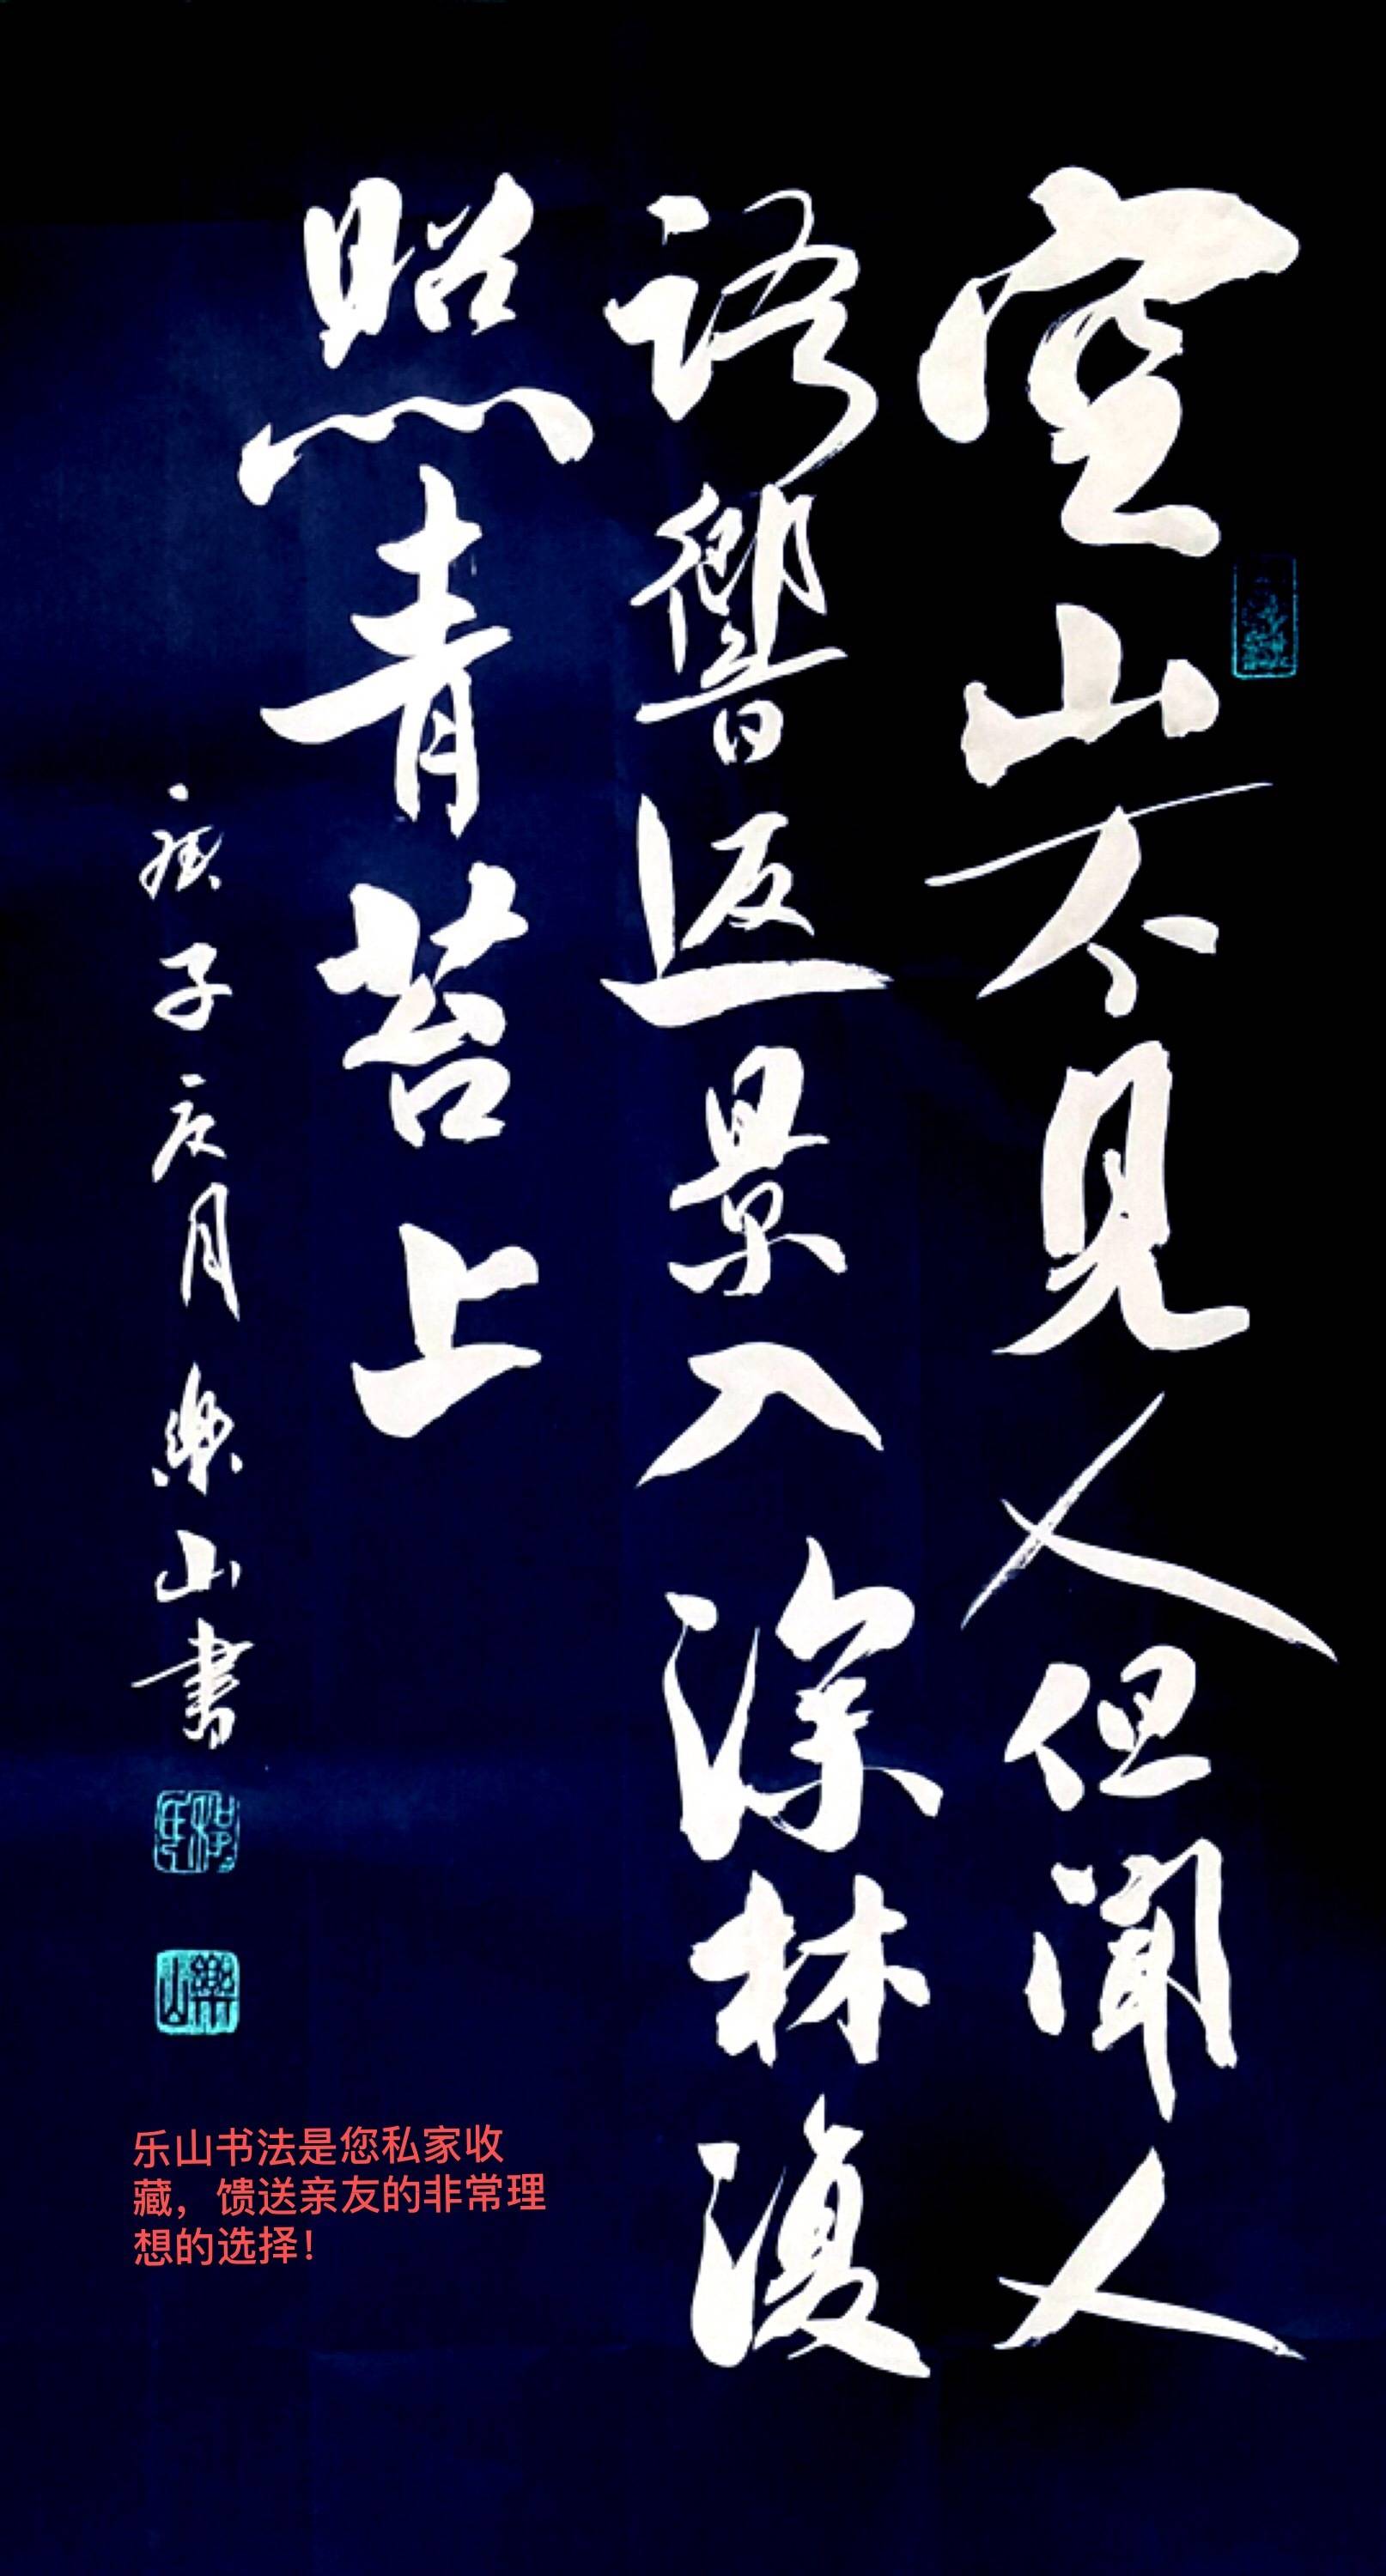 空山不見人但聞人
語響返景入深林復
照青苔上
庚子辰月樂山書
樂山
乐山书法是您私家收
藏，馈送亲友的非常理
想的选择！